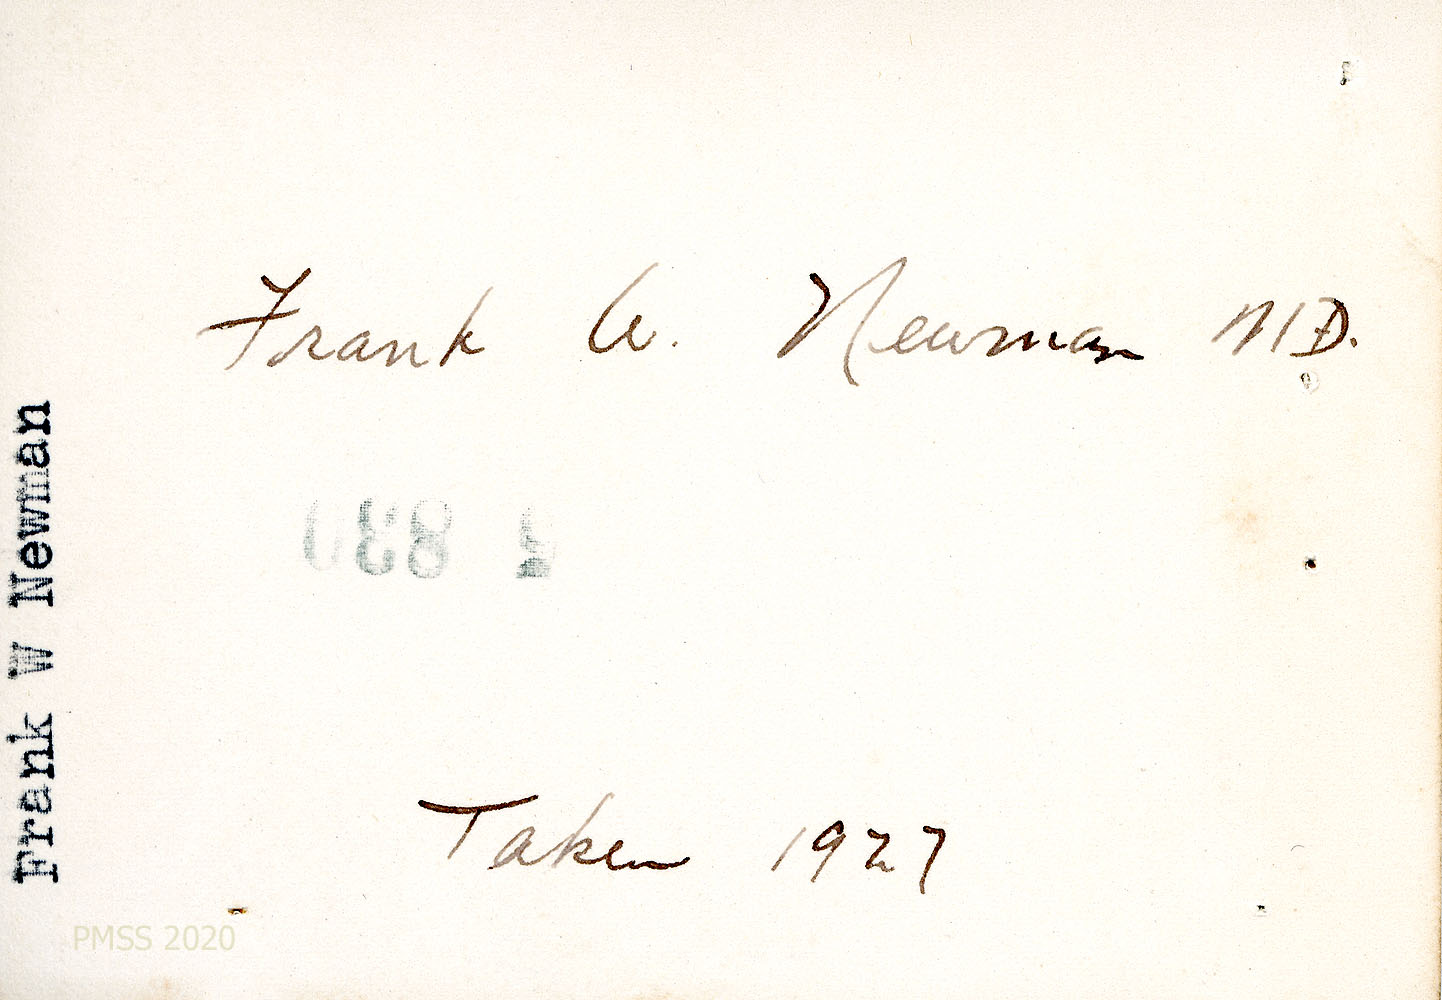 Frank W. Newman M.D.
Taken 1927
Frank W Newman
PMSS 2020